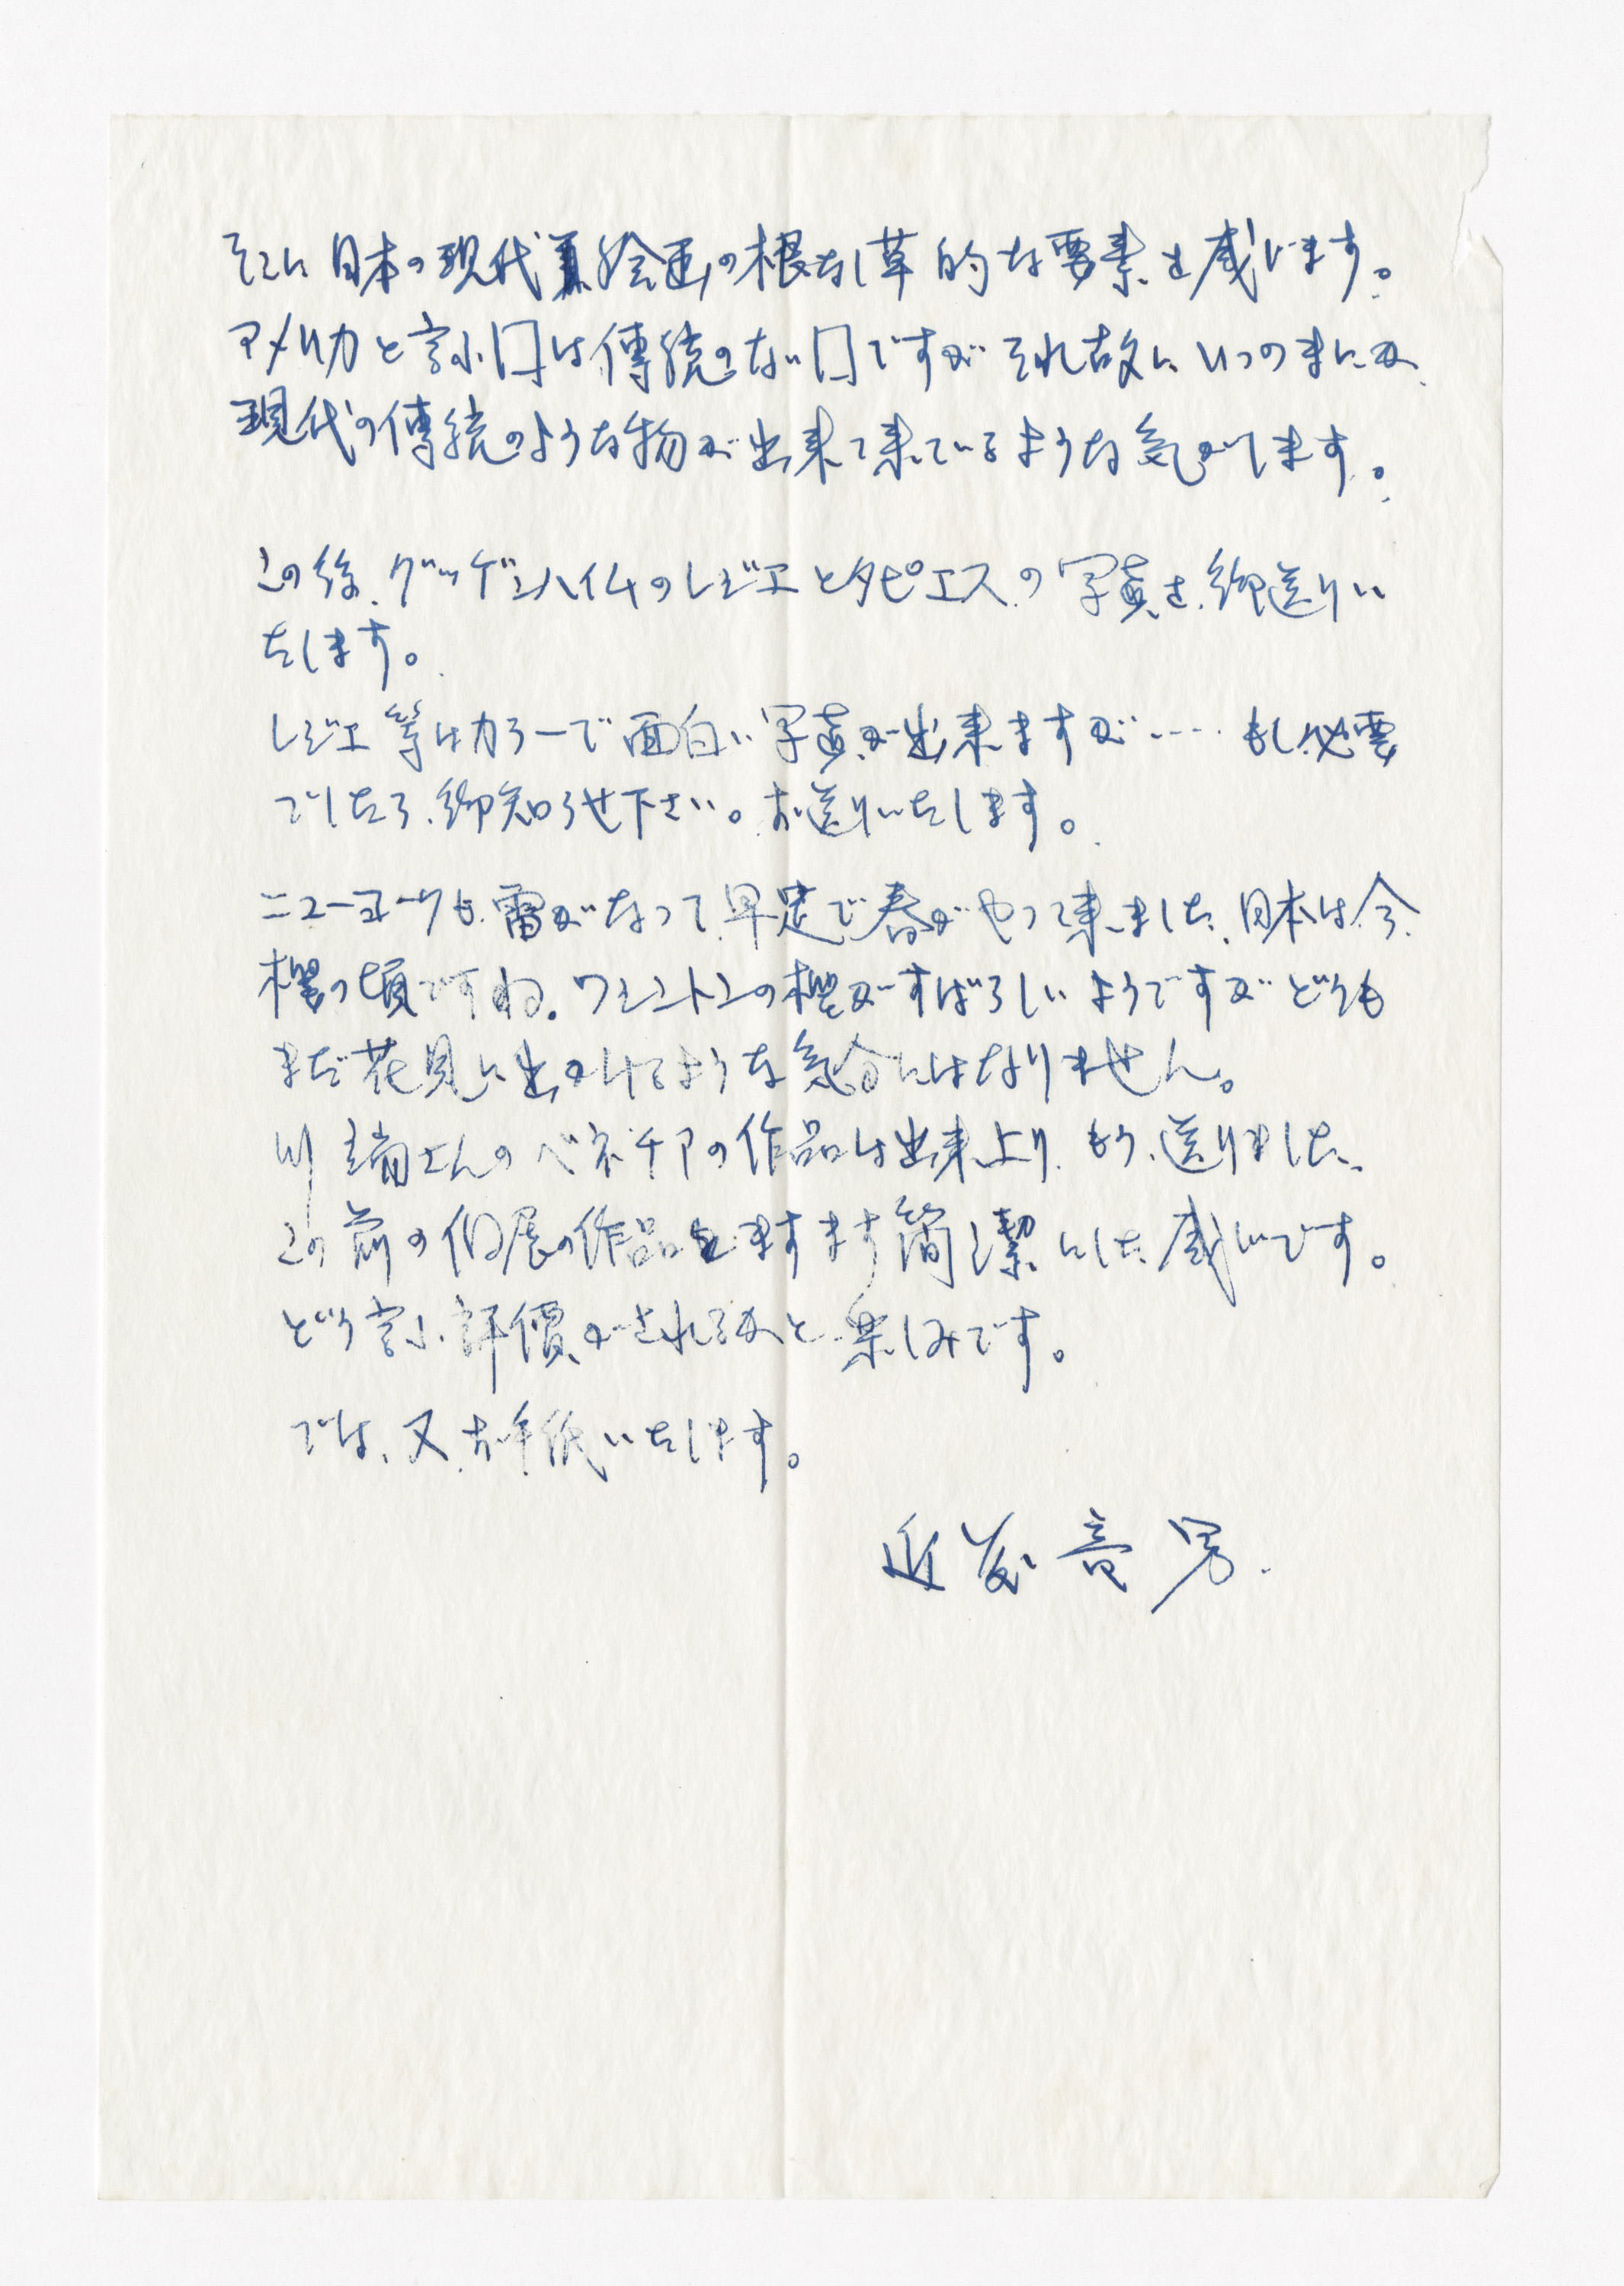 そこに日本の現代絵画の根なし草的な要素を感じます。
アメリカと言ふ囗は傳統のない囗ですが それ故に いつのまにか
現代の傳統のような物が出来て来ているような気がします。
この後、グッゲンハイムのレジエとタピエスの写真を、御送りい
たします。
レジエ等はカラーで面白い写真が出来ますが・・・・もし必要
でしたら、御知らせ下さい。お送りいたします。
ニューヨークも、雷がなって、早足で春がやって来ました、日本は今、
櫻の頃ですね。ワシントンの櫻がすばらしいようですが どうも
まだ花見に出かけるような気分にはなりません。
川端さんのベネチアの作品は出来上り、もう、送りました、
この前の個展の作品をますます簡潔にした感じです。
どう言ふ評價がされるかと楽しみです。
では、又、お手紙いたします。
近藤竜男